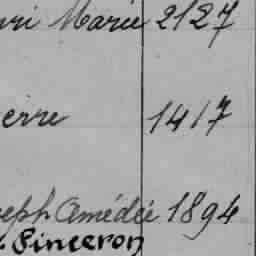 uri Marie 2127
erre 1417
seph Amédée 1894
Pinceron